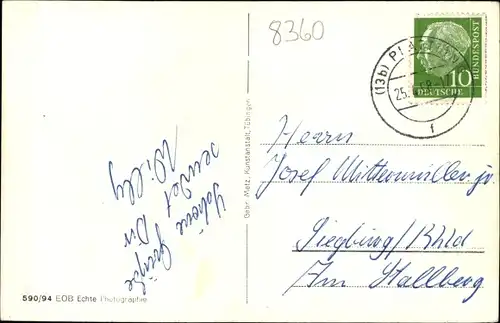 8360
DEUTSCHE
BUNDESPOST
10
(13b)
25.
f
Schöne
Grüße
Dir
sendet
Willy
Herrn
Josef Mittermüller jr.
Siegburg/Rhld
Am Stallberg
Gebr. Metz, Kunstanstalt, Tübingen
590/94 EOB Echte Photographie